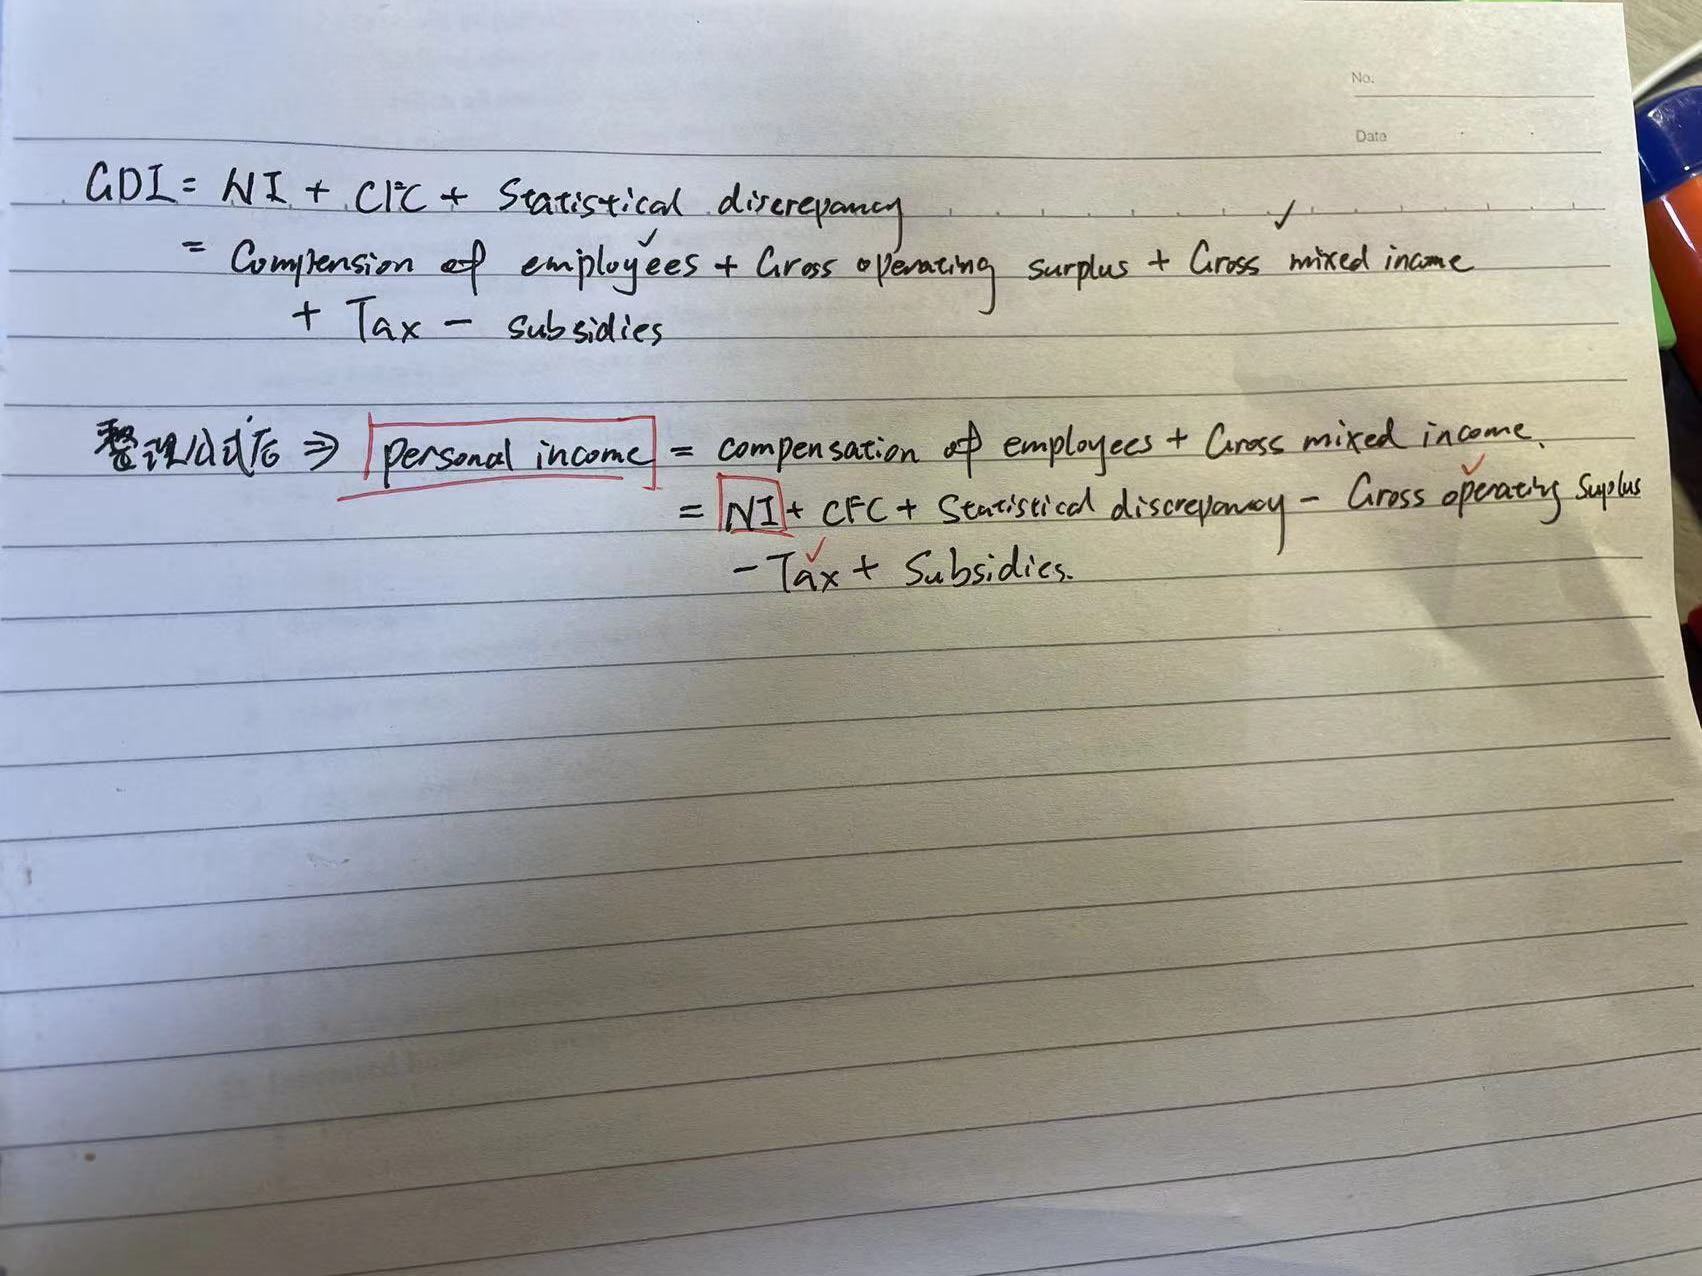 No.
Date
GDI = NI + CFC + Statistical discrepancy
= Compension of employees + Gross operating surplus + Gross mixed income
+ Tax - subsidies
整理公式后 ⇒ personal income = compensation of employees + Gross mixed income.
= NI + CFC + Statistical discrepancy - Gross operating Suplus
- Tax + Subsidies.